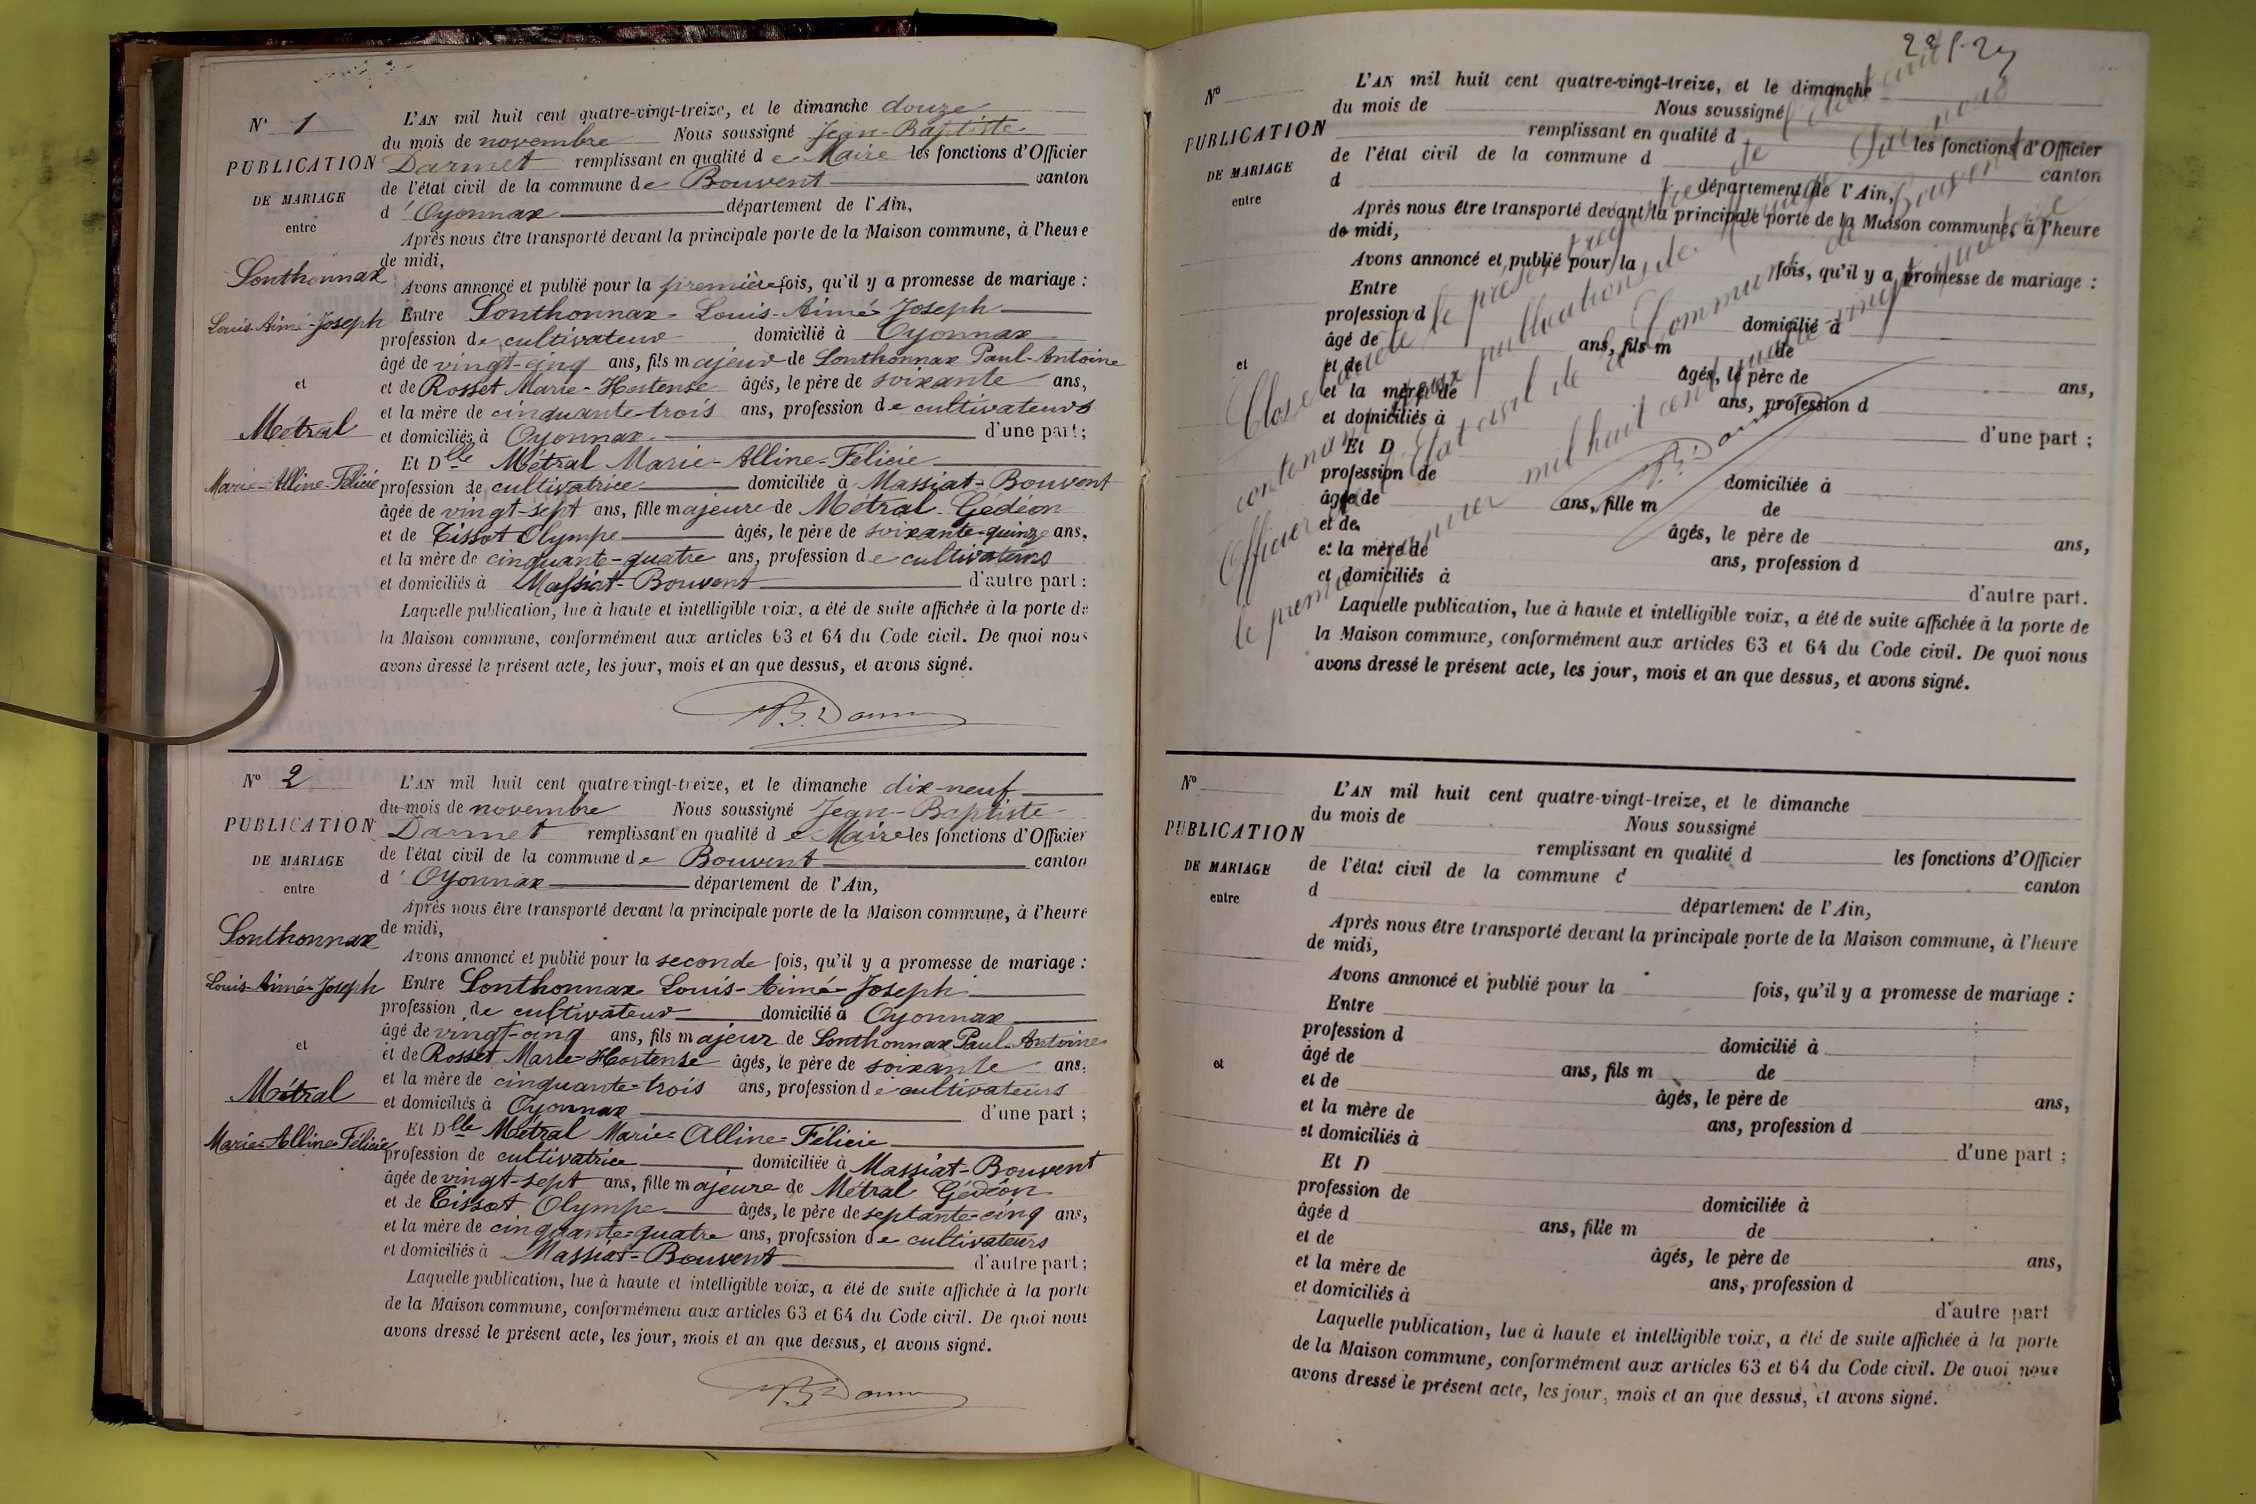 N° 1
PUBLICATION
DE MARIAGE
entre
Sonthonnax
Louis-Aimé-Joseph
et
Métral
Marie-Alline-Félicie
L'AN mil huit cent quatre-vingt-treize, et le dimanche douze
du mois de novembre Nous soussigné Jean-Baptiste
Darmet remplissant en qualité de Maire les fonctions d'Officier
de l'état civil de la commune de Bouvent canton
d'Oyonnax département de l'Ain,
Après nous être transporté devant la principale porte de la Maison commune, à l'heure
de midi,
Avons annoncé et publié pour la première fois, qu'il y a promesse de mariage :
Entre Sonthonnax Louis-Aimé Joseph
profession de cultivateur domicilié à Oyonnax
âgé de vingt-cinq ans, fils majeur de Sonthonnax Paul-Antoine
et de Rosset Marie-Hortense âgés, le père de soixante ans,
et la mère de cinquante-trois ans, profession de cultivateurs
et domiciliés à Oyonnax d'une part ;
Et Dlle Métral Marie-Alline-Félicie
profession de cultivatrice domiciliée à Massiat-Bouvent
âgée de vingt-sept ans, fille majeure de Métral Gédéon
et de Tissot Olympe âgés, le père de soixante-quinze ans,
et la mère de cinquante-quatre ans, profession de cultivateurs
et domiciliés à Massiat-Bouvent d'autre part :
Laquelle publication, lue à haute et intelligible voix, a été de suite affichée à la porte de
la Maison commune, conformément aux articles 63 et 64 du Code civil. De quoi nous
avons dressé le présent acte, les jour, mois et an que dessus, et avons signé.
N° 2
PUBLICATION
DE MARIAGE
entre
Sonthonnax
Louis-Aimé-Joseph
et
Métral
Marie-Alline-Félicie
L'AN mil huit cent quatre-vingt-treize, et le dimanche dix-neuf
du mois de novembre Nous soussigné Jean-Baptiste
Darmet remplissant en qualité de Maire les fonctions d'Officier
de l'état civil de la commune de Bouvent canton
d'Oyonnax département de l'Ain,
Après nous être transporté devant la principale porte de la Maison commune, à l'heure
de midi,
Avons annoncé et publié pour la seconde fois, qu'il y a promesse de mariage :
Entre Sonthonnax Louis-Aimé-Joseph
profession de cultivateur domicilié à Oyonnax
âgé de vingt-cinq ans, fils majeur de Sonthonnax Paul-Antoine
et de Rosset Marie-Hortense âgés, le père de soixante ans,
et la mère de cinquante-trois ans, profession de cultivateurs
et domiciliés à Oyonnax d'une part ;
Et Dlle Métral Marie-Alline-Félicie
profession de cultivatrice domiciliée à Massiat-Bouvent
âgée de vingt-sept ans, fille majeure de Métral Gédéon
et de Tissot Olympe âgés, le père de septante-cinq ans,
et la mère de cinquante-quatre ans, profession de cultivateurs
et domiciliés à Massiat-Bouvent d'autre part ;
Laquelle publication, lue à haute et intelligible voix, a été de suite affichée à la porte
de la Maison commune, conformément aux articles 63 et 64 du Code civil. De quoi nous
avons dressé le présent acte, les jour, mois et an que dessus, et avons signé.
N°
PUBLICATION
DE MARIAGE
entre
et
L'AN mil huit cent quatre-vingt-treize, et le dimanche
du mois de Nous soussigné
remplissant en qualité d les fonctions d'Officier
de l'état civil de la commune d canton
d département de l'Ain,
Après nous être transporté devant la principale porte de la Maison commune, à l'heure
de midi,
Avons annoncé et publié pour la fois, qu'il y a promesse de mariage :
Entre
profession d domicilié à
âgé de ans, fils m de
et de âgés, le père de ans,
et la mère de ans, profession d
et domiciliés à d'une part ;
Et D
profession de domiciliée à
âgée de ans, fille m de
et de âgés, le père de ans,
et la mère de ans, profession d
et domiciliés à d'autre part.
Laquelle publication, lue à haute et intelligible voix, a été de suite affichée à la porte de
la Maison commune, conformément aux articles 63 et 64 du Code civil. De quoi nous
avons dressé le présent acte, les jour, mois et an que dessus, et avons signé.
Clos le présent registre de
contenant deux publications de mariage
Officier de l'état civil de la Commune de Bouvent
le premier janvier mil huit cent quatre vingt quatorze
N°
PUBLICATION
DE MARIAGE
entre
et
L'AN mil huit cent quatre-vingt-treize, et le dimanche
du mois de Nous soussigné
remplissant en qualité d les fonctions d'Officier
de l'état civil de la commune d canton
d département de l'Ain,
Après nous être transporté devant la principale porte de la Maison commune, à l'heure
de midi,
Avons annoncé et publié pour la fois, qu'il y a promesse de mariage :
Entre
profession d domicilié à
âgé de ans, fils m de
et de âgés, le père de ans,
et la mère de ans, profession d
et domiciliés à d'une part ;
Et D
profession de domiciliée à
âgée d ans, fille m de
et de âgés, le père de ans,
et la mère de ans, profession d
et domiciliés à d'autre part
Laquelle publication, lue à haute et intelligible voix, a été de suite affichée à la porte
de la Maison commune, conformément aux articles 63 et 64 du Code civil. De quoi nous
avons dressé le présent acte, les jour, mois et an que dessus, et avons signé.